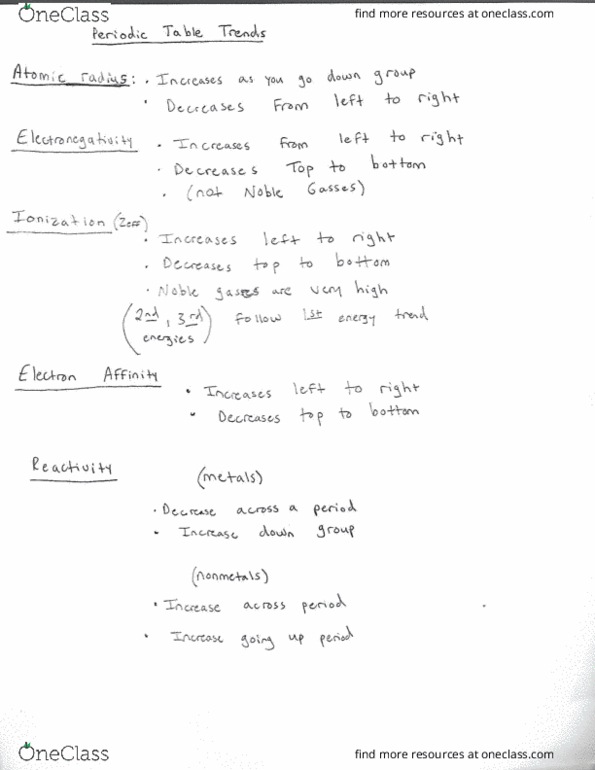 OneClass
find more resources at oneclass.com
Periodic Table Trends
Atomic radius: • Increases as you go down group
• Decreases From left to right
Electronegativity • Increases From left to right
• Decreases Top to bottom
• (not Noble Gasses)
Ionization (Zeff)
• Increases left to right
• Decreases top to bottom
• Noble gases are very high
(2nd, 3rd energies) Follow 1st energy trend
Electron Affinity
• Increases left to right
• Decreases top to bottom
Reactivity (metals)
• Decrease across a period
• Increase down group
(nonmetals)
• Increase across period
• Increase going up period
OneClass
find more resources at oneclass.com